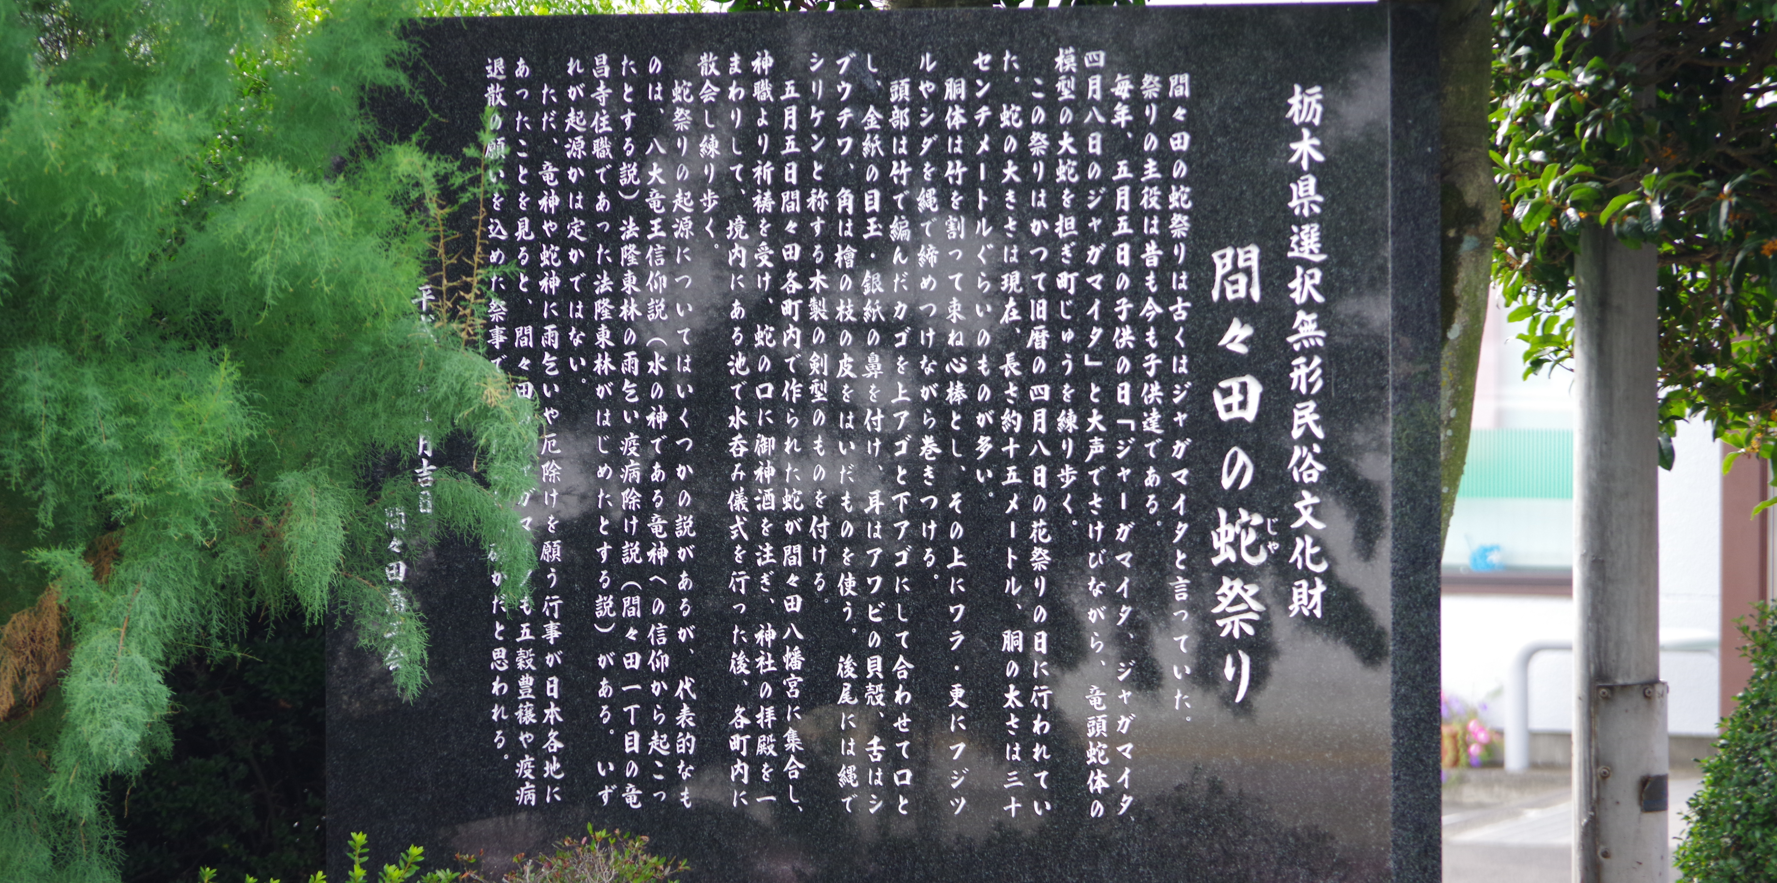 栃木県選択無形民俗文化財
間々田の蛇祭り
じゃ
間々田の蛇祭りは古くはジャガマイタと言っていた。
祭りの主役は昔も今も子供達である。
毎年、五月五日の子供の日「ジャーガマイタ、ジャガマイタ、
四月八日のジャガマイタ」と大声でさけびながら、竜頭蛇体の
模型の大蛇を担ぎ町じゅうを練り歩く。
この祭りはかつて旧暦の四月八日の花祭りの日に行われてい
た。蛇の大きさは現在、長さ約十五メートル、胴の太さは三十
センチメートルぐらいのものが多い。
胴体は竹を割って束ね心棒とし、その上にワラ・更にフジツ
ルやシダを縄で締めつけながら巻きつける。
頭部は竹で編んだカゴを上アゴと下アゴにして合わせて口と
し、金紙の目玉・銀紙の鼻を付け、耳はアワビの貝殻、舌はシ
ブウチワ、角は檜の枝の皮をはいだものを使う。後尾には縄で
シリケンと称する木製の剣型のものを付ける。
五月五日間々田各町内で作られた蛇が間々田八幡宮に集合し、
神職より祈祷を受け、蛇の口に御神酒を注ぎ、神社の拝殿を一
まわりして、境内にある池で水呑み儀式を行った後、各町内に
散会し練り歩く。
蛇祭りの起源についてはいくつかの説があるが、代表的なも
のは、八大竜王信仰説（水の神である竜神への信仰から起こっ
たとする説）法隆東林の雨乞い疫病除け説（間々田一丁目の竜
昌寺住職であった法隆東林がはじめたとする説）がある。いず
れが起源かは定かではない。
ただ、竜神や蛇神に雨乞いや厄除けを願う行事が日本各地に
あったことを見ると、間々田ガマも五穀豊穣や疫病
退散の願いを込めた祭事でだと思われる。
平月吉日
間々田会